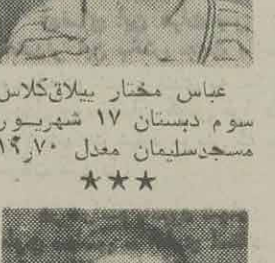 عباس مختار ییلاق‌کلاس
سوم دبستان ۱۷ شهریور
مسجدسلیمان معدل ۱۹٫۷۰
★★★